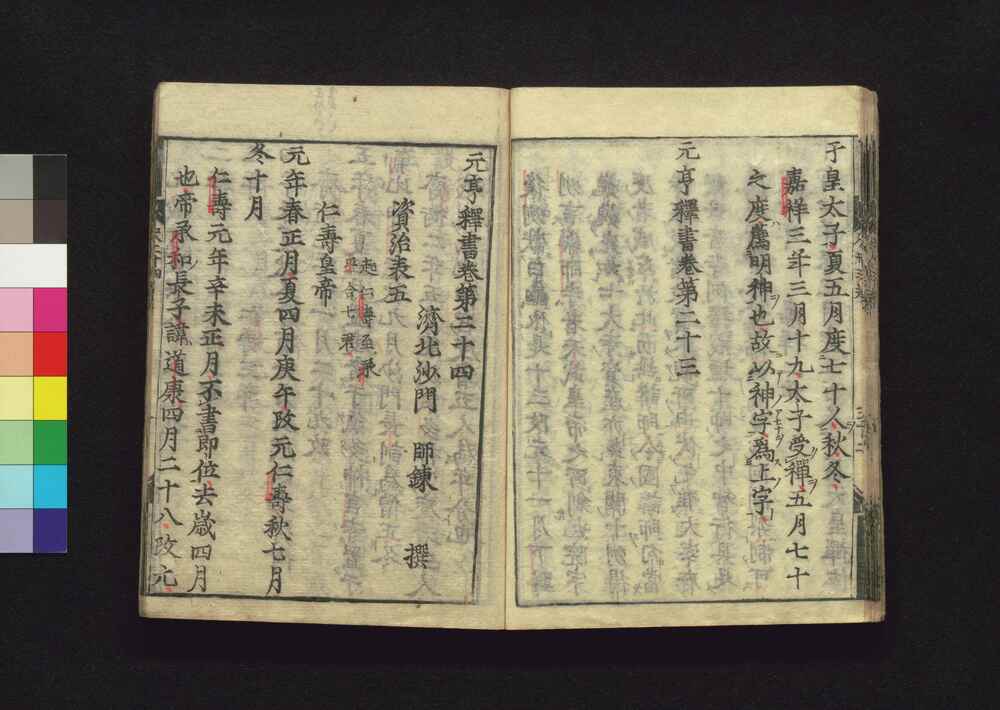 于皇太子夏五月度七十人秋冬
嘉祥三年三月十九太子受禪五月七十
之度爲明神也故以神字爲上字
元亨釋書卷第二十三
元亨釋書卷第二十四
資治表五
濟北沙門 師鍊 撰
起仁壽至承
平合七君
仁壽皇帝
元年春正月夏四月庚午改元仁壽秋七月
冬十月
仁壽元年辛未正月不書即位去歲四月
也帝承和長子諱道康四月二十八改元